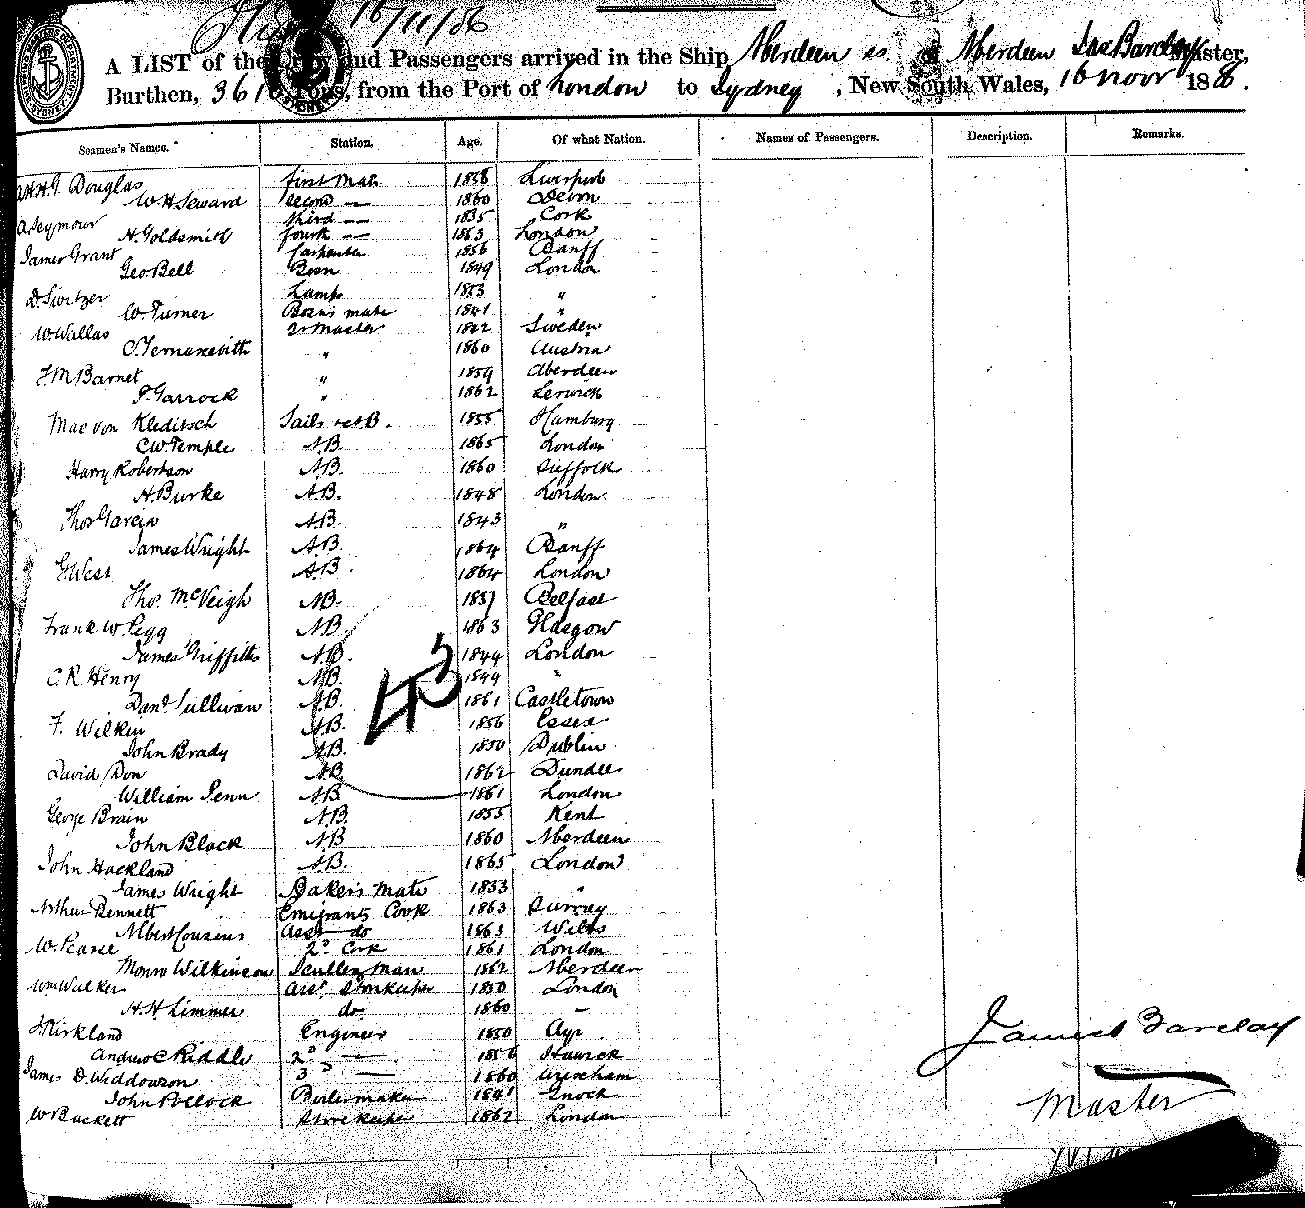 16/11/86
A LIST of the Crew and Passengers arrived in the Ship Aberdeen ss. of Aberdeen Jas Barclay Master,
Burthen, 361 Tons, from the Port of London to Sydney, New South Wales, 16 Novr 188
Seamen's Names. Station. Age. Of what Nation. Names of Passengers. Description. Remarks.
Douglas First Mate 1858 Liverpool
W H Seward Second — 1860 Devon
A Seymour third — 1835 Cork
H. Goldsmith fourth — 1863 London
James Grant Carpenter 1856 Banff
Geo Bell Bosn 1849 London
D. Switzer Lamps 1853 "
W. Turner Bosns mate 1841 "
W. Wallas Qr Master 1842 Sweden
" 1860 Austria
J. M Barnet " 1859 Aberdeen
J. Garrock " 1862 Lerwick
Max von Kleditsch Sails & A.B. 1855 Hamburg
C W Temple A.B. 1865 London
Harry Robertson A.B. 1860 Suffolk
H. Burke A.B. 1848 London
Thos Garcia A.B. 1843 "
James Wright A.B. 1864 Banff
G. West A.B. 1864 London
Thos. McVeigh A.B. 1857 Belfast
Frank W. Pegg A.B. 1863 Glasgow
James Griffiths A.B. 1844 London
C. R. Henry A.B. 1844 "
Danl Sullivan A.B. 1861 Castletown
F. Wilkin A.B. 1856 Essex
John Brady A.B. 1850 Dublin
David Don A.B. 1862 Dundee
William Penn A.B. 1861 London
George Brain A.B. 1855 Kent
John Black A.B. 1860 Aberdeen
John Hackland A.B. 1865 London
James Wright Bakers Mate 1833 "
Arthur Bennett Emigrants Cook 1863 Surrey
Albert Cousens Asst do 1863 Wilts
W. Pearce 2d Cook 1861 London
Monro Wilkinson Scullery Man 1862 Aberdeen
Wm Walker Asst. Storekeeper 1850 London
H. H. Limmer do 1860 —
Kirkland Engineer 1850 Ayr
Andrew C Riddle 2d — 1856 Hawick
James D. Widdowson 3d — 1860 Wrexham
John Pollock Boilermaker 1841
W Backett Storekeeper 1862 London
43
James Barclay
Master